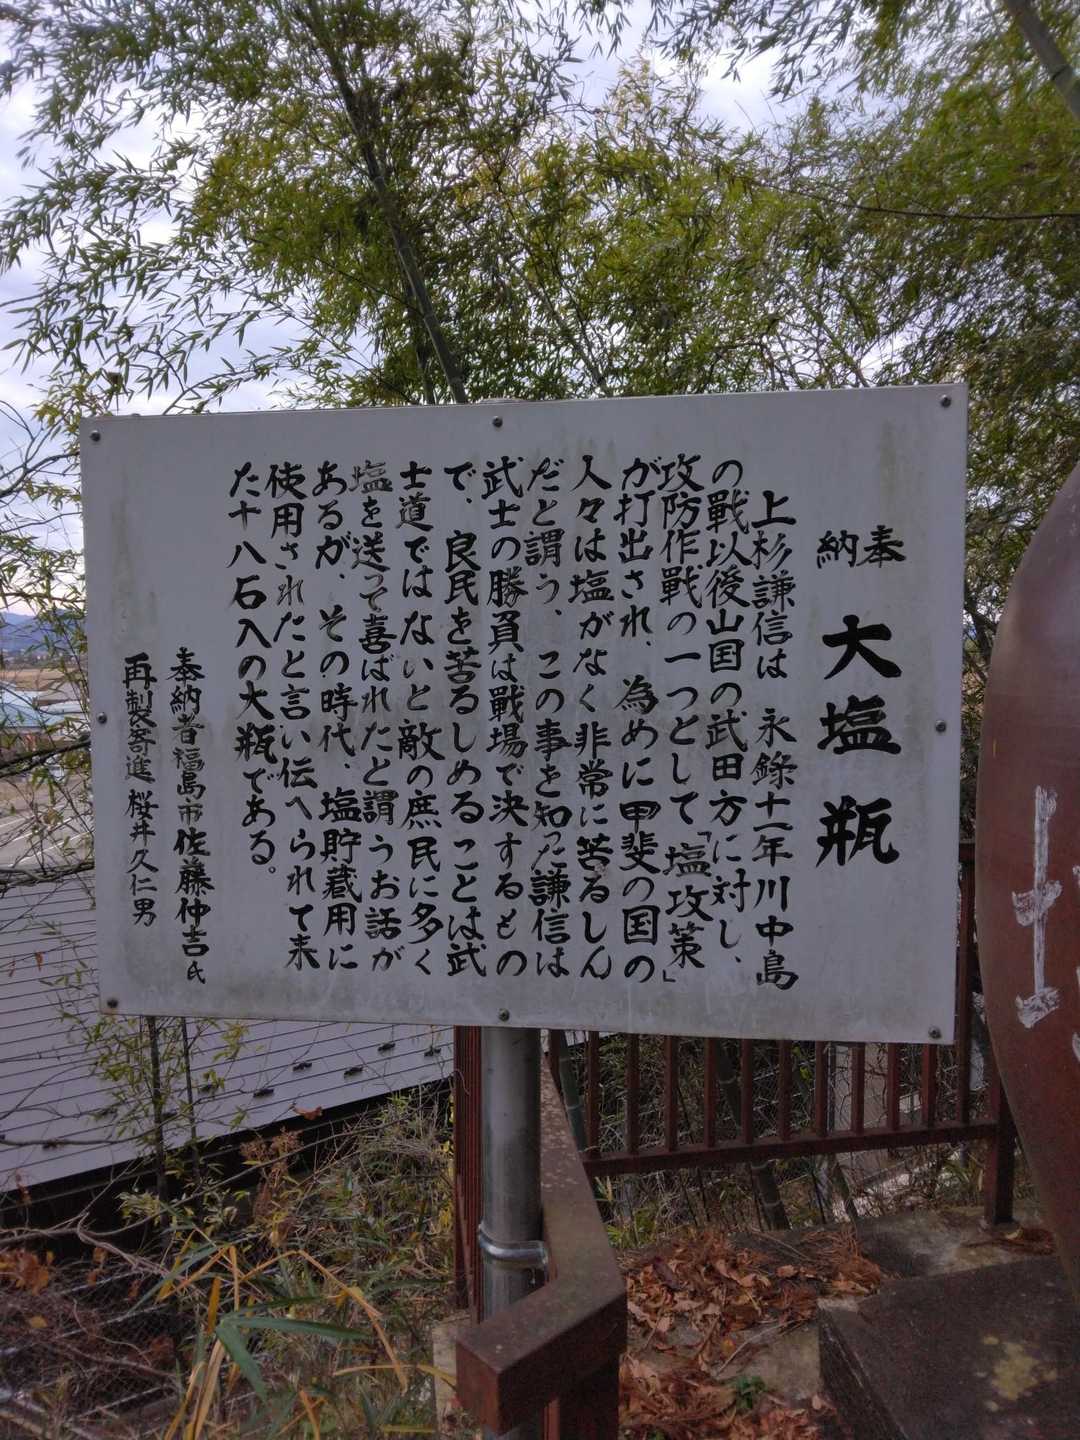 奉納 大塩瓶
上杉謙信は 永錄十一年川中島
の戰以後山国の武田方に対し、
攻防作戰の一つとして「塩攻策」
が打出され、為めに甲斐の国の
人々は塩がなく非常に苦るしん
だと謂う、この事を知った謙信は
武士の勝負は戰場で決するもの
で、良民を苦るしめることは武
士道ではないと敵の庶民に多く
塩を送って喜ばれたと謂うお話が
あるが、その時代、塩貯蔵用に
使用されたと言い伝へられて来
た十八石入の大瓶である。
奉納者福島市佐藤仲吉氏
再製寄進 桜井久仁男